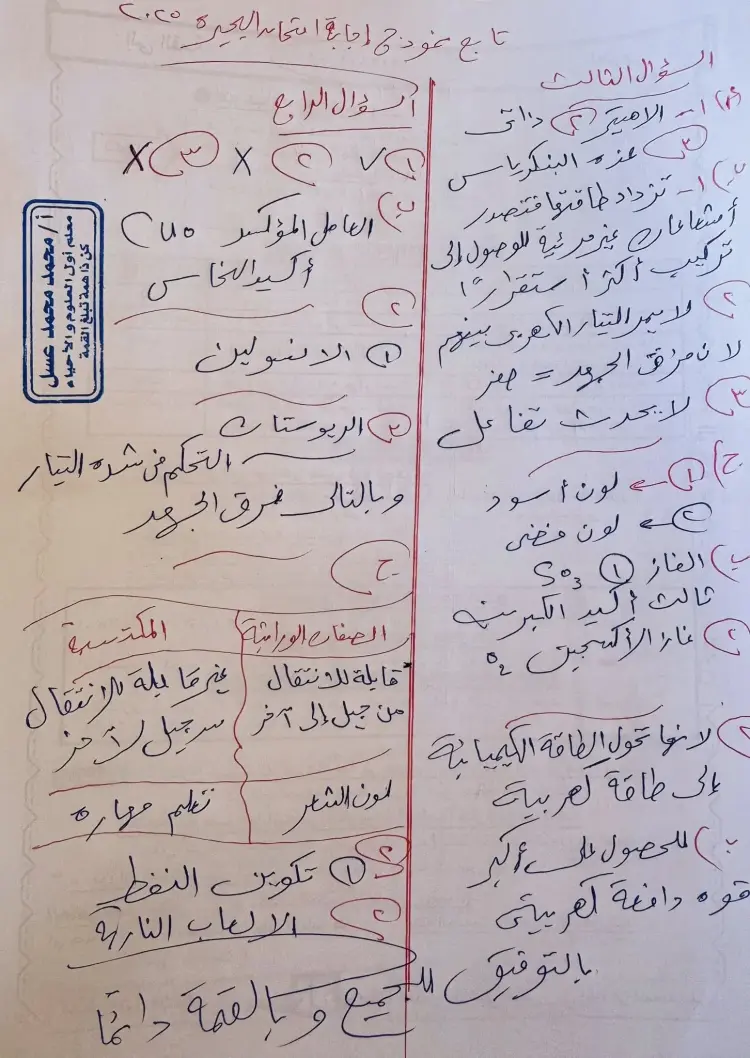 تابع نموذج إجابة امتحان البحيرة ٢٠٢٥
السؤال الثالث
(أ) ١- الامبير ٢ ذاتى
٣ غدة البنكرياس
ب) ١- تزداد طاقتها فتصدر
أشعاعات غير مرئية للوصول إلى
تركيب أكثر أستقراراً
٢ لا يمر التيار الكهربى بينهم
لان فرق الجهد = صفر
٣ لا يحدث تفاعل
ج) ١ ← لون أسود
٢ ← لون فضى
ب) الغاز ١ SO3
ثالث أكسيد الكبريت
٢ غاز الأكسجين O2
٢ لانها تحول الطاقة الكيميائية
إلى طاقة كهربية
ب) للحصول على أكبر
قوه دافعة كهربيتى
السؤال الرابع
١ ✓ ٢ X ٣ X
ب) العامل المؤكسد CuO
أكسيد النحاس
٢
١ الانسولين
٢ الريوستات
التحكم فى شده التيار
وبالتالى فرق الجهد
ج
الصفات الوراثية المكتسبة
قابلة للانتقال غير قابلة للانتقال
من جيل إلى آخر من جيل لآخر
لون الشعر تعلم مهارة
٢ ١ تكوين النفط
٢ الالعاب النارية
بالتوفيق للجميع وبالقمة دائمًا
أ/ محمد محمد عسل
معلم أول العلوم والأحياء
كن ذا همة تبلغ القمة